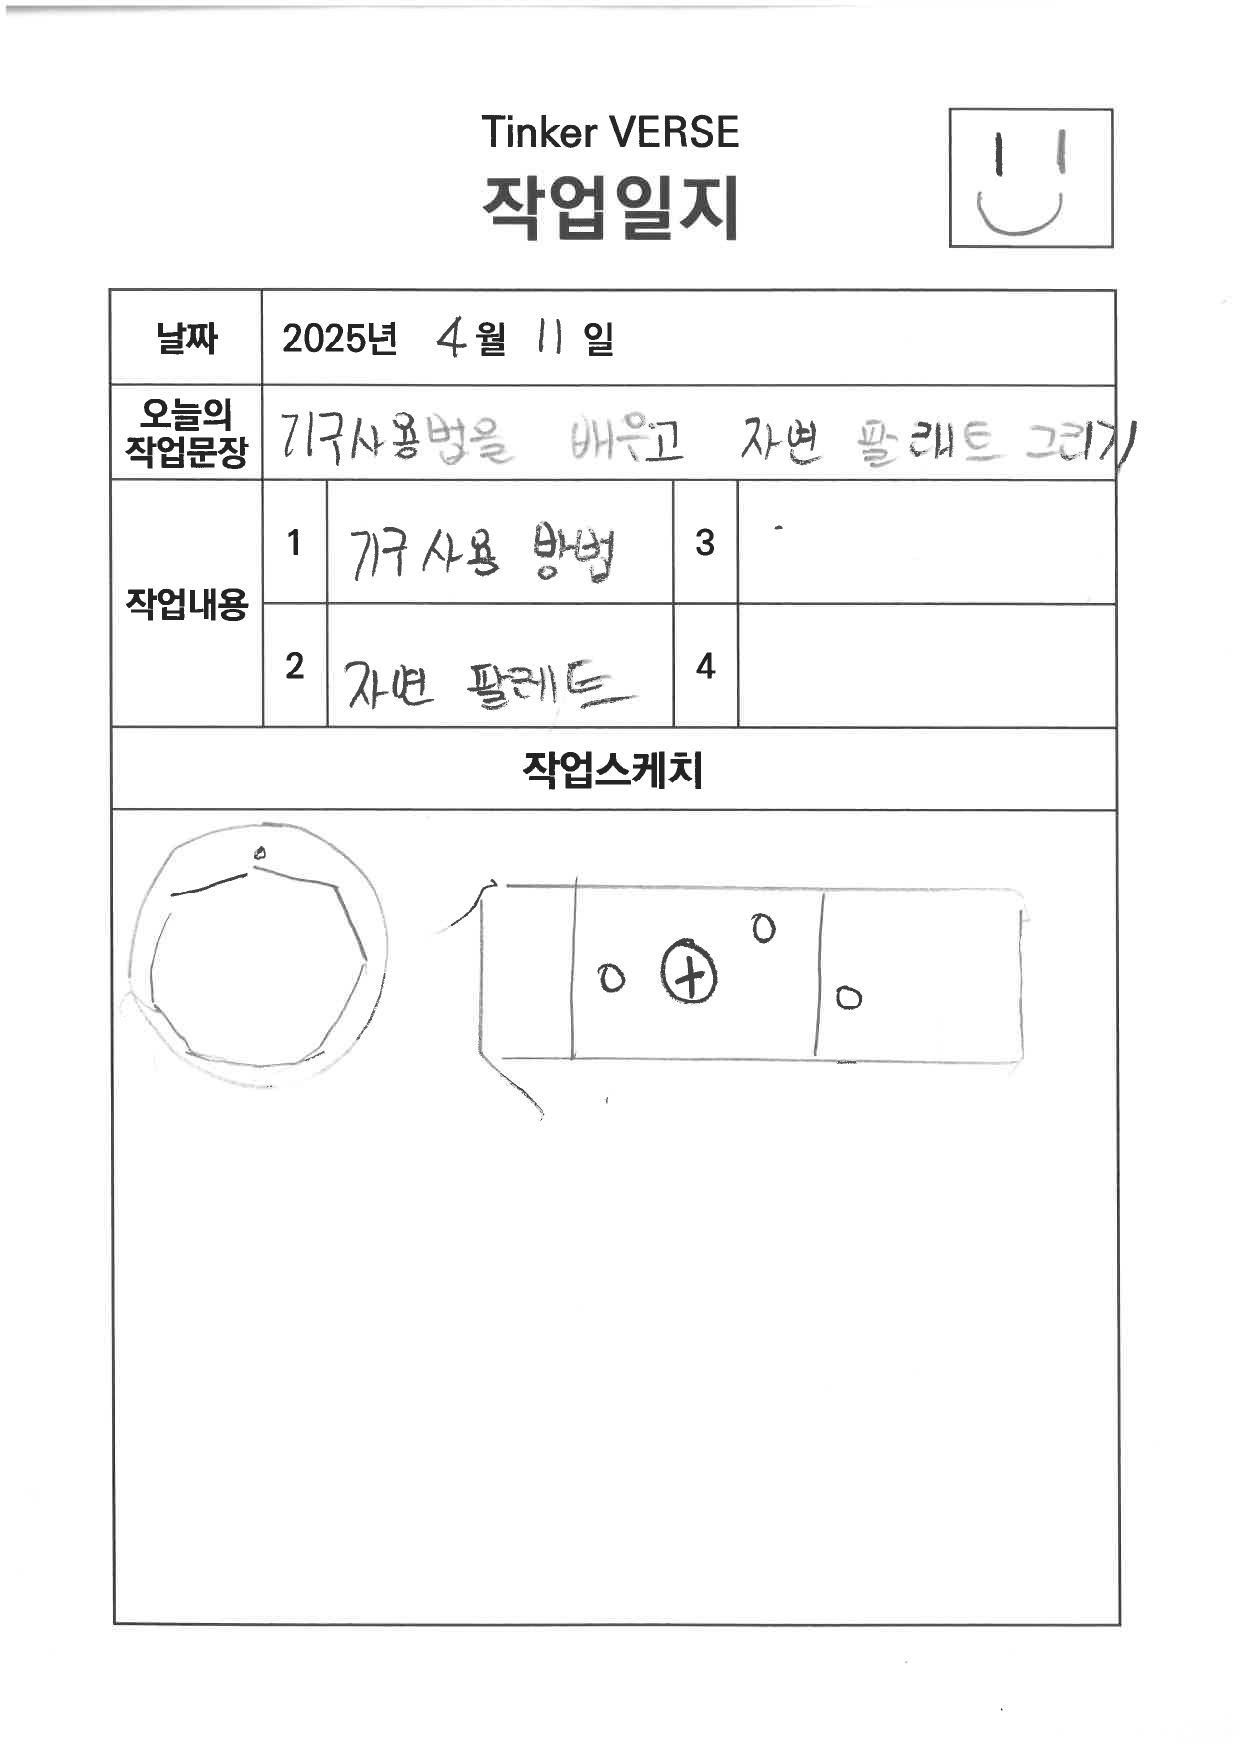 Tinker VERSE
작업일지
날짜 2025년 4월 11일
오늘의 작업문장 기구사용법을 배운고 자연 팔래트 그리기
작업내용
1 기구사용 방법 3
2 자연 팔레트 4
작업스케치